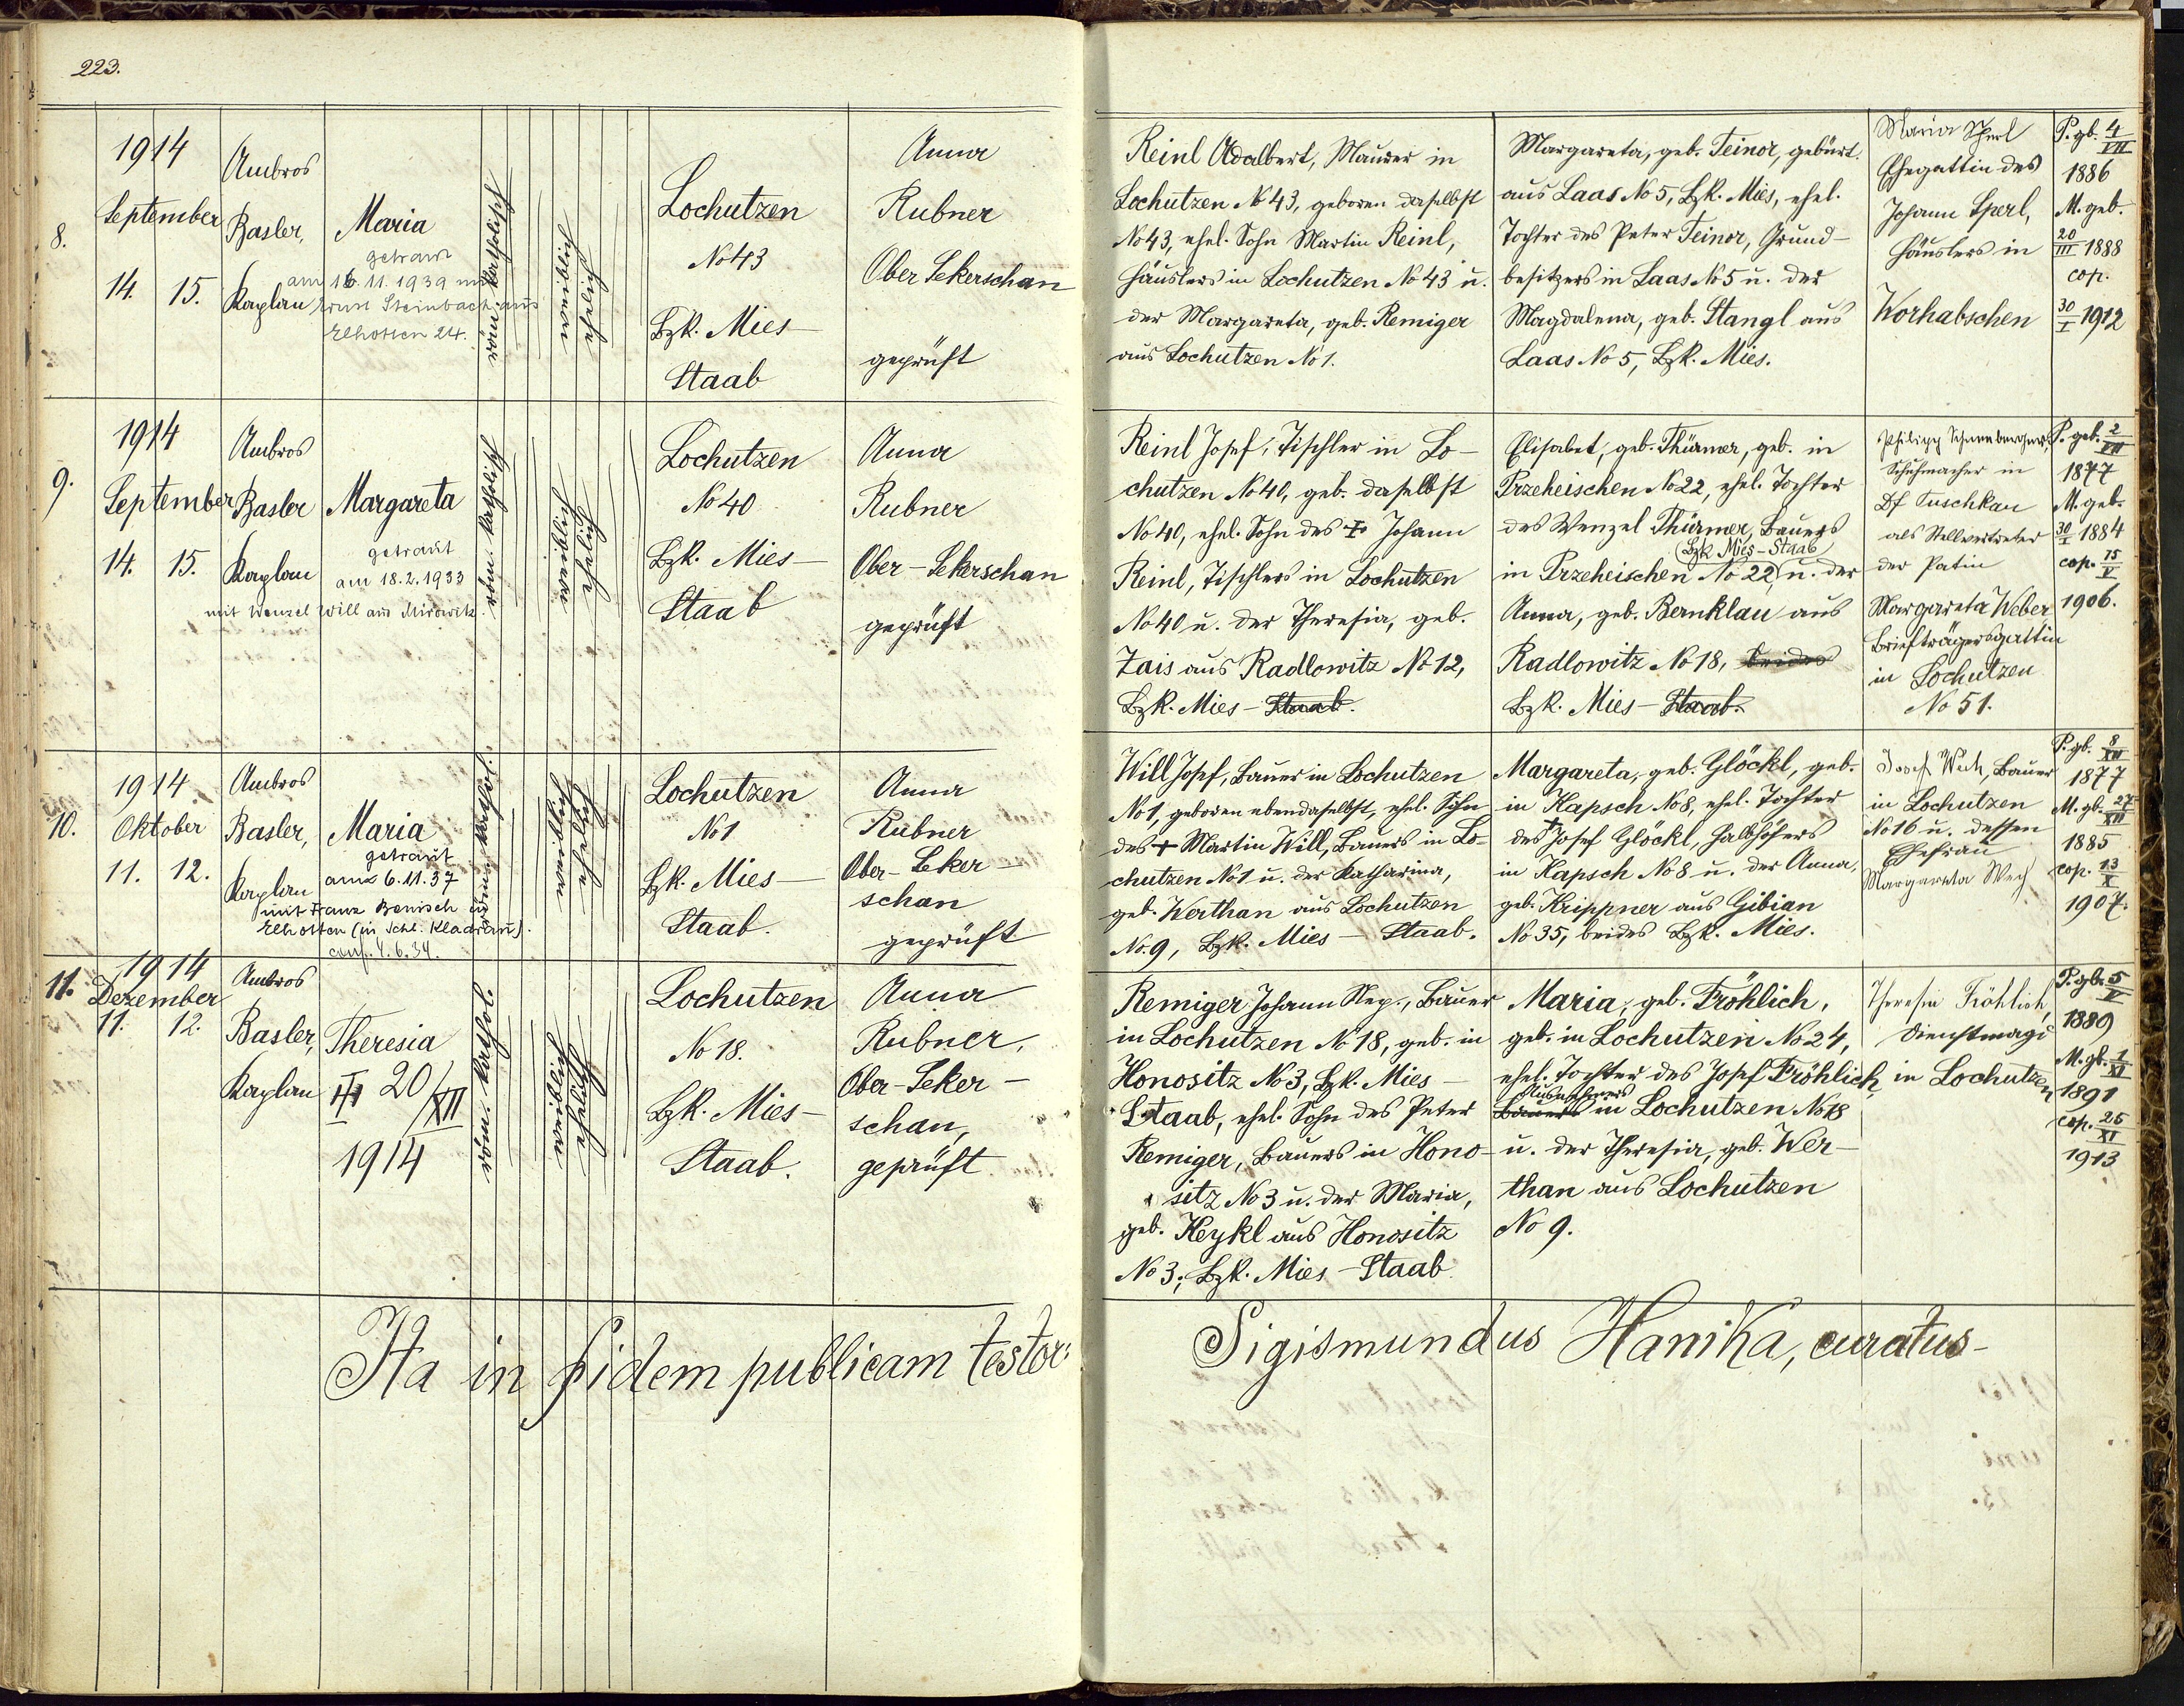 223.
8.
1914
September
14. 15.
Ambros
Basler,
Kaplan
Maria
getraut
am 16.11.1939 mit
Ernst Steinbach aus
Elhotten 24.
röm. katholisch
weiblich
ehelich
Lochutzen
No 43
Bzk. Mies-
Staab
Anna
Rubner
Ober Sekerschan
geprüft
Reinl Adalbert, Maurer in
Lochutzen No 43, geboren daselbst
No 43, ehel. Sohn Martin Reinl,
Häuslers in Lochutzen No 43 u.
der Margareta, geb. Remiger
aus Lochutzen No 1.
Margareta, geb. Teinor, gebürt.
aus Laas No 5, Bzk. Mies, ehel.
Tochter des Peter Teinor, Grund-
besitzers in Laas No 5 u. der
Magdalena, geb. Stangl aus
Laas No 5, Bzk. Mies.
Maria Sperl
Ehegattin des
Johann Sperl,
Häuslers in
Worhabschen
P. gb. 4/VII
1886
M. geb.
20/III 1888
cop.
30/I 1912
9.
1914
September
14. 15.
Ambros
Basler
Kaplan
Margareta
getraut
am 18.2.1933
mit Wenzel Will aus Mirowitz
röm. katholisch
weiblich
ehelich
Lochutzen
No 40
Bzk. Mies-
Staab
Anna
Rubner
Ober-Sekerschan
geprüft
Reinl Josef, Tischler in Lo-
chutzen No 40, geb. daselbst
No 40, ehel. Sohn des + Johann
Reinl, Tischlers in Lochutzen
No 40 u. der Theresia, geb.
Zais aus Radlowitz No 12,
Bzk. Mies - Staab.
Elisabet, geb. Thürmer, geb. in
Przeheischen No 22, ehel. Tochter
des Wenzel Thürmer, Bauers
(Bzk. Mies-Staab)
in Przeheischen No 22, u. der
Anna, geb. Bernklau aus
Radlowitz No 18, beides
Bzk. Mies - Staab.
Philipp Schneeberger,
Schuhmacher in
Df Tuschkau
als Stellvertreter
der Patin
Margareta Weber
Briefträgersgattin
in Lochutzen
No 51.
P. geb. 2/VII
1877
M. geb.
30/I 1884
cop. 15/V
1906.
10.
1914
Oktober
11. 12.
Ambros
Basler,
Kaplan
Maria
getraut
am 6.11.37
mit Franz Benisch in
Elhotten (in Schl. Kladrau).
conf. 4.6.34.
röm. kathol.
weiblich
eheliche
Lochutzen
No 1
Bzk. Mies-
Staab.
Anna
Rubner
Ober-Seker-
schan
geprüft
Will Josef, Bauer in Lochutzen
No 1, geboren ebendaselbst, ehel. Sohn
des + Martin Will, Bauers in Lo-
chutzen No 1 u. der Katharina,
geb. Werthan aus Lochutzen
No. 9, Bzk. Mies - Staab.
Margareta, geb. Glöckl, geb.
in Kapsch No 8, ehel. Tochter
des + Josef Glöckl, Halbhöfers
in Kapsch No 8 u. der Anna,
geb. Krippner aus Gibian
No 35, beides Bzk. Mies.
Josef Wech, Bauer
in Lochutzen
No 16 u. dessen
Ehefrau
Margareta Wech
P. gb. 8/XII
1877
M. gb. 27/XII
1885
cop. 13/X
1907.
11.
1914
Dezember
11. 12.
Ambros
Basler,
Kaplan
Theresia
20/XII
1914
röm. kathol.
weiblich
ehelich
Lochutzen
No 18.
Bzk. Mies-
Staab.
Anna
Rubner,
Ober-Seker-
schan,
geprüft
Remiger Johann Nep., Bauer
in Lochutzen No 18, geb. in
Honositz No 3, Bzk. Mies-
Staab, ehel. Sohn des Peter
Remiger, Bauers in Hono-
sitz No 3 u. der Maria,
geb. Heykl aus Honositz
No 3, Bzk. Mies - Staab
Maria, geb. Fröhlich,
geb. in Lochutzen No 24,
ehel. Tochter des Josef Fröhlich,
Ausnehmers
Bauers in Lochutzen No 18
u. der Theresia, geb. Wer-
than aus Lochutzen
No 9.
Theresia Fröhlich,
Dienstmagd
in Lochutzen
P. gb. 5/V
1889
M. gb. 1/XI
1891
cop. 25/XI
1913
Ita in fidem publicam testor:
Sigismundus Hanika, curatus-